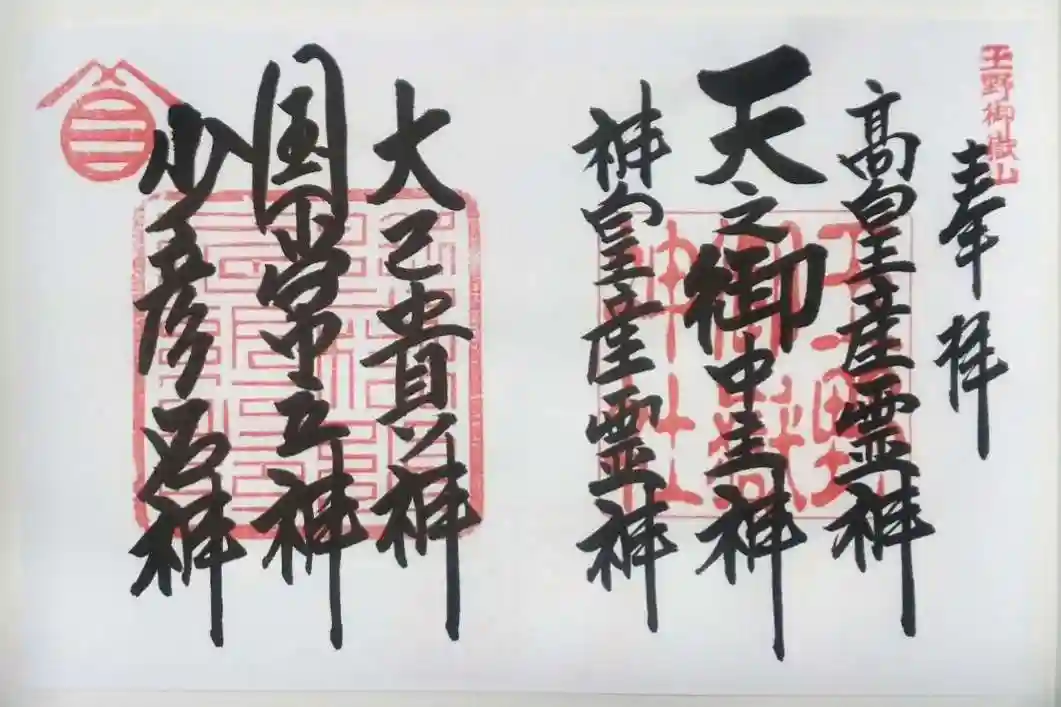 玉野御嶽山
奉拝
高皇産霊神
天之御中主神
神皇産霊神
玉野
御嶽
神社
大己貴神
国常立神
少彦名神